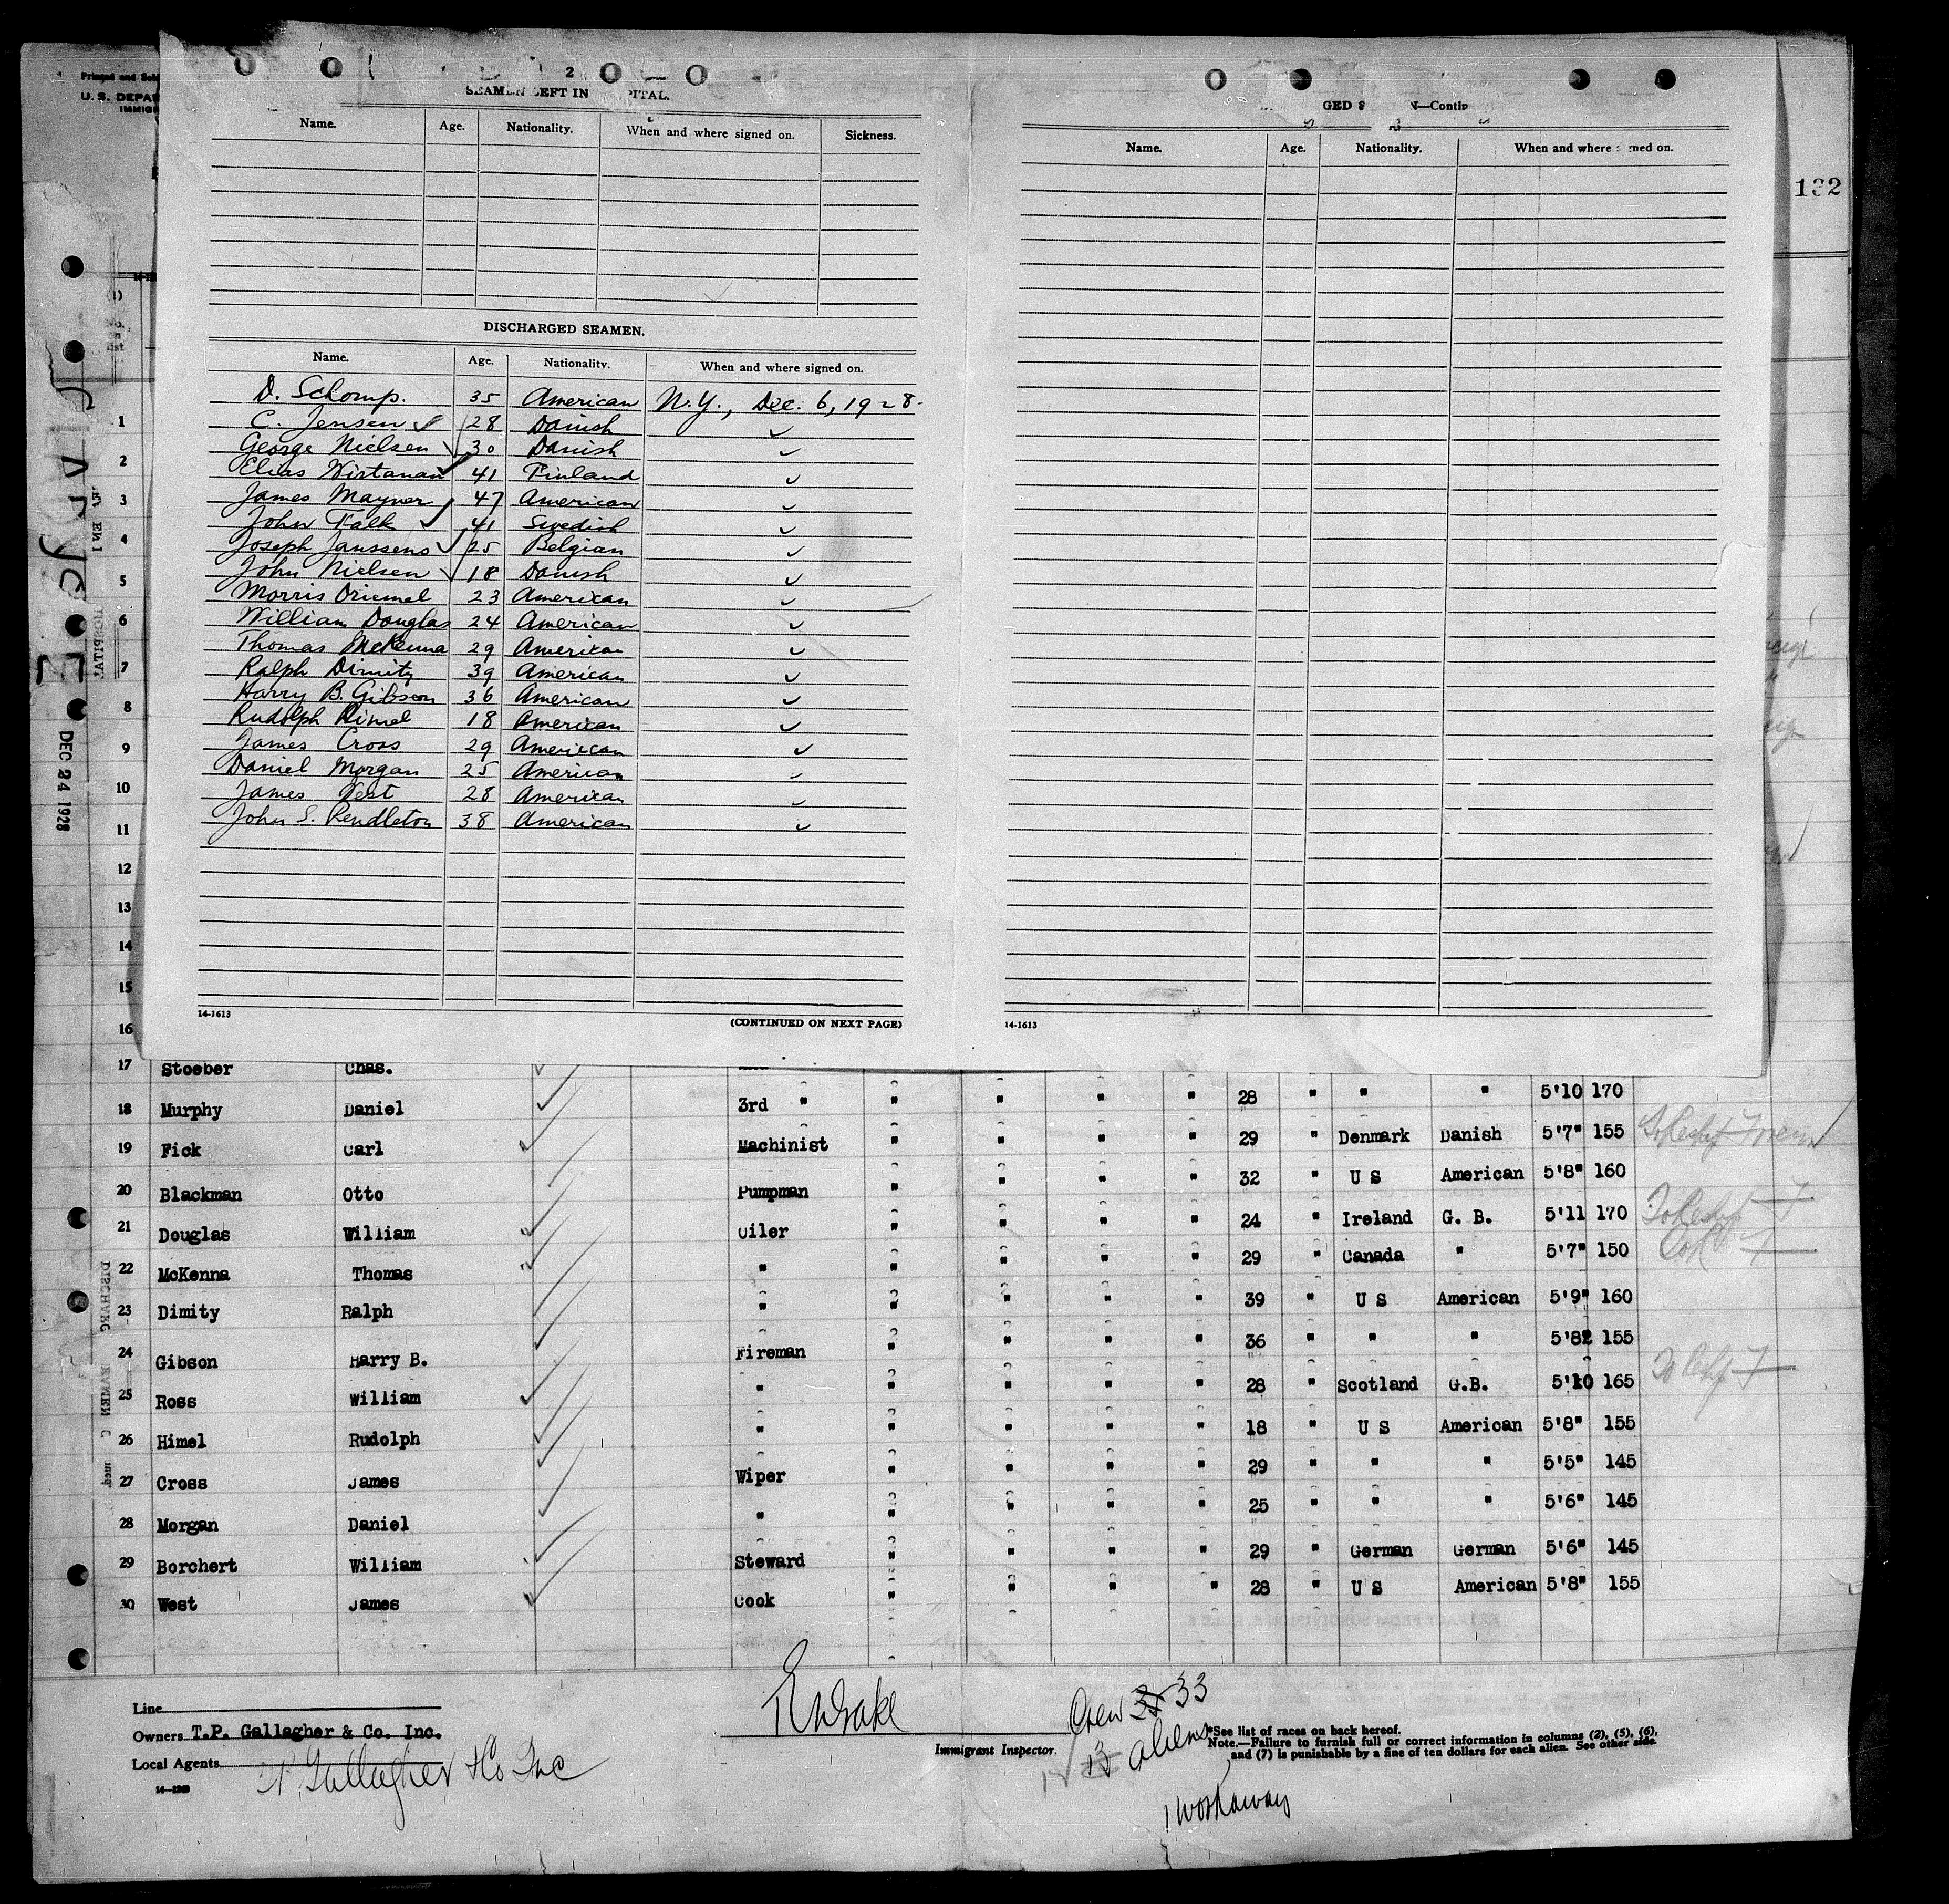 Printed and Sold
U. S. DEPA
IMMIG
2
SEAMEN LEFT IN PITAL.
Name. Age. Nationality. When and where signed on. Sickness.
DISCHARGED SEAMEN.
Name. Age. Nationality. When and where signed on.
D. Schomp. 35 American N.Y., Dec. 6, 1928-
C. Jensen ✓ 28 Danish ✓
George Nielsen ✓ 30 Danish ✓
Elias Wirtanan ✓ 41 Finland ✓
James Mayner 47 American ✓
John Falk ✓ 41 Swedish ✓
Joseph Janssens ✓ 25 Belgian ✓
John Nielsen ✓ 18 Danish ✓
Morris Driemel 23 American ✓
William Douglas 24 American ✓
Thomas McKenna 29 American ✓
Ralph Dimity 39 American ✓
Harry B. Gibson 36 American ✓
Rudolph Himel 18 American ✓
James Cross 29 American ✓
Daniel Morgan 25 American ✓
James West 28 American ✓
John S. Pendleton 38 American ✓
14-1613
(CONTINUED ON NEXT PAGE)
GED S N—Contin
Name. Age. Nationality. When and where signed on.
14-1613
132
DEC 24 1928
1
2
3
4
5
6
7
8
9
10
11
12
13
14
15
16
17 Stoeber Chas.
18 Murphy Daniel 3rd " " " " " 28 " " " 5'10 170
19 Fick Carl Machinist " " " " 29 " Denmark Danish 5'7" 155
20 Blackman Otto Pumpman " " " " 32 " U S American 5'8" 160
21 Douglas William Oiler " " " " 24 " Ireland G. B. 5'11 170
22 McKenna Thomas " " " " " 29 " Canada " 5'7" 150
23 Dimity Ralph " " " " " 39 " U S American 5'9" 160
24 Gibson Harry B. Fireman " " " " 36 " " " 5'82 155
25 Ross William " " " " " 28 " Scotland G.B. 5'10 165
26 Himel Rudolph " " " " " 18 " U S American 5'8" 155
27 Cross James Wiper " " " " 29 " " " 5'5" 145
28 Morgan Daniel " " " " " 25 " " " 5'6" 145
29 Borchert William Steward " " " " 29 " German German 5'6" 145
30 West James Cook " " " " 28 " U S American 5'8" 155
Line
Owners T.P. Gallagher & Co. Inc.
Local Agents T.P. Gallagher & Co Inc
Drake
Immigrant Inspector.
Crew 33
13 aliens
1 workaway
*See list of races on back hereof.
Note.—Failure to furnish full or correct information in columns (2), (5), (6),
and (7) is punishable by a fine of ten dollars for each alien. See other side.